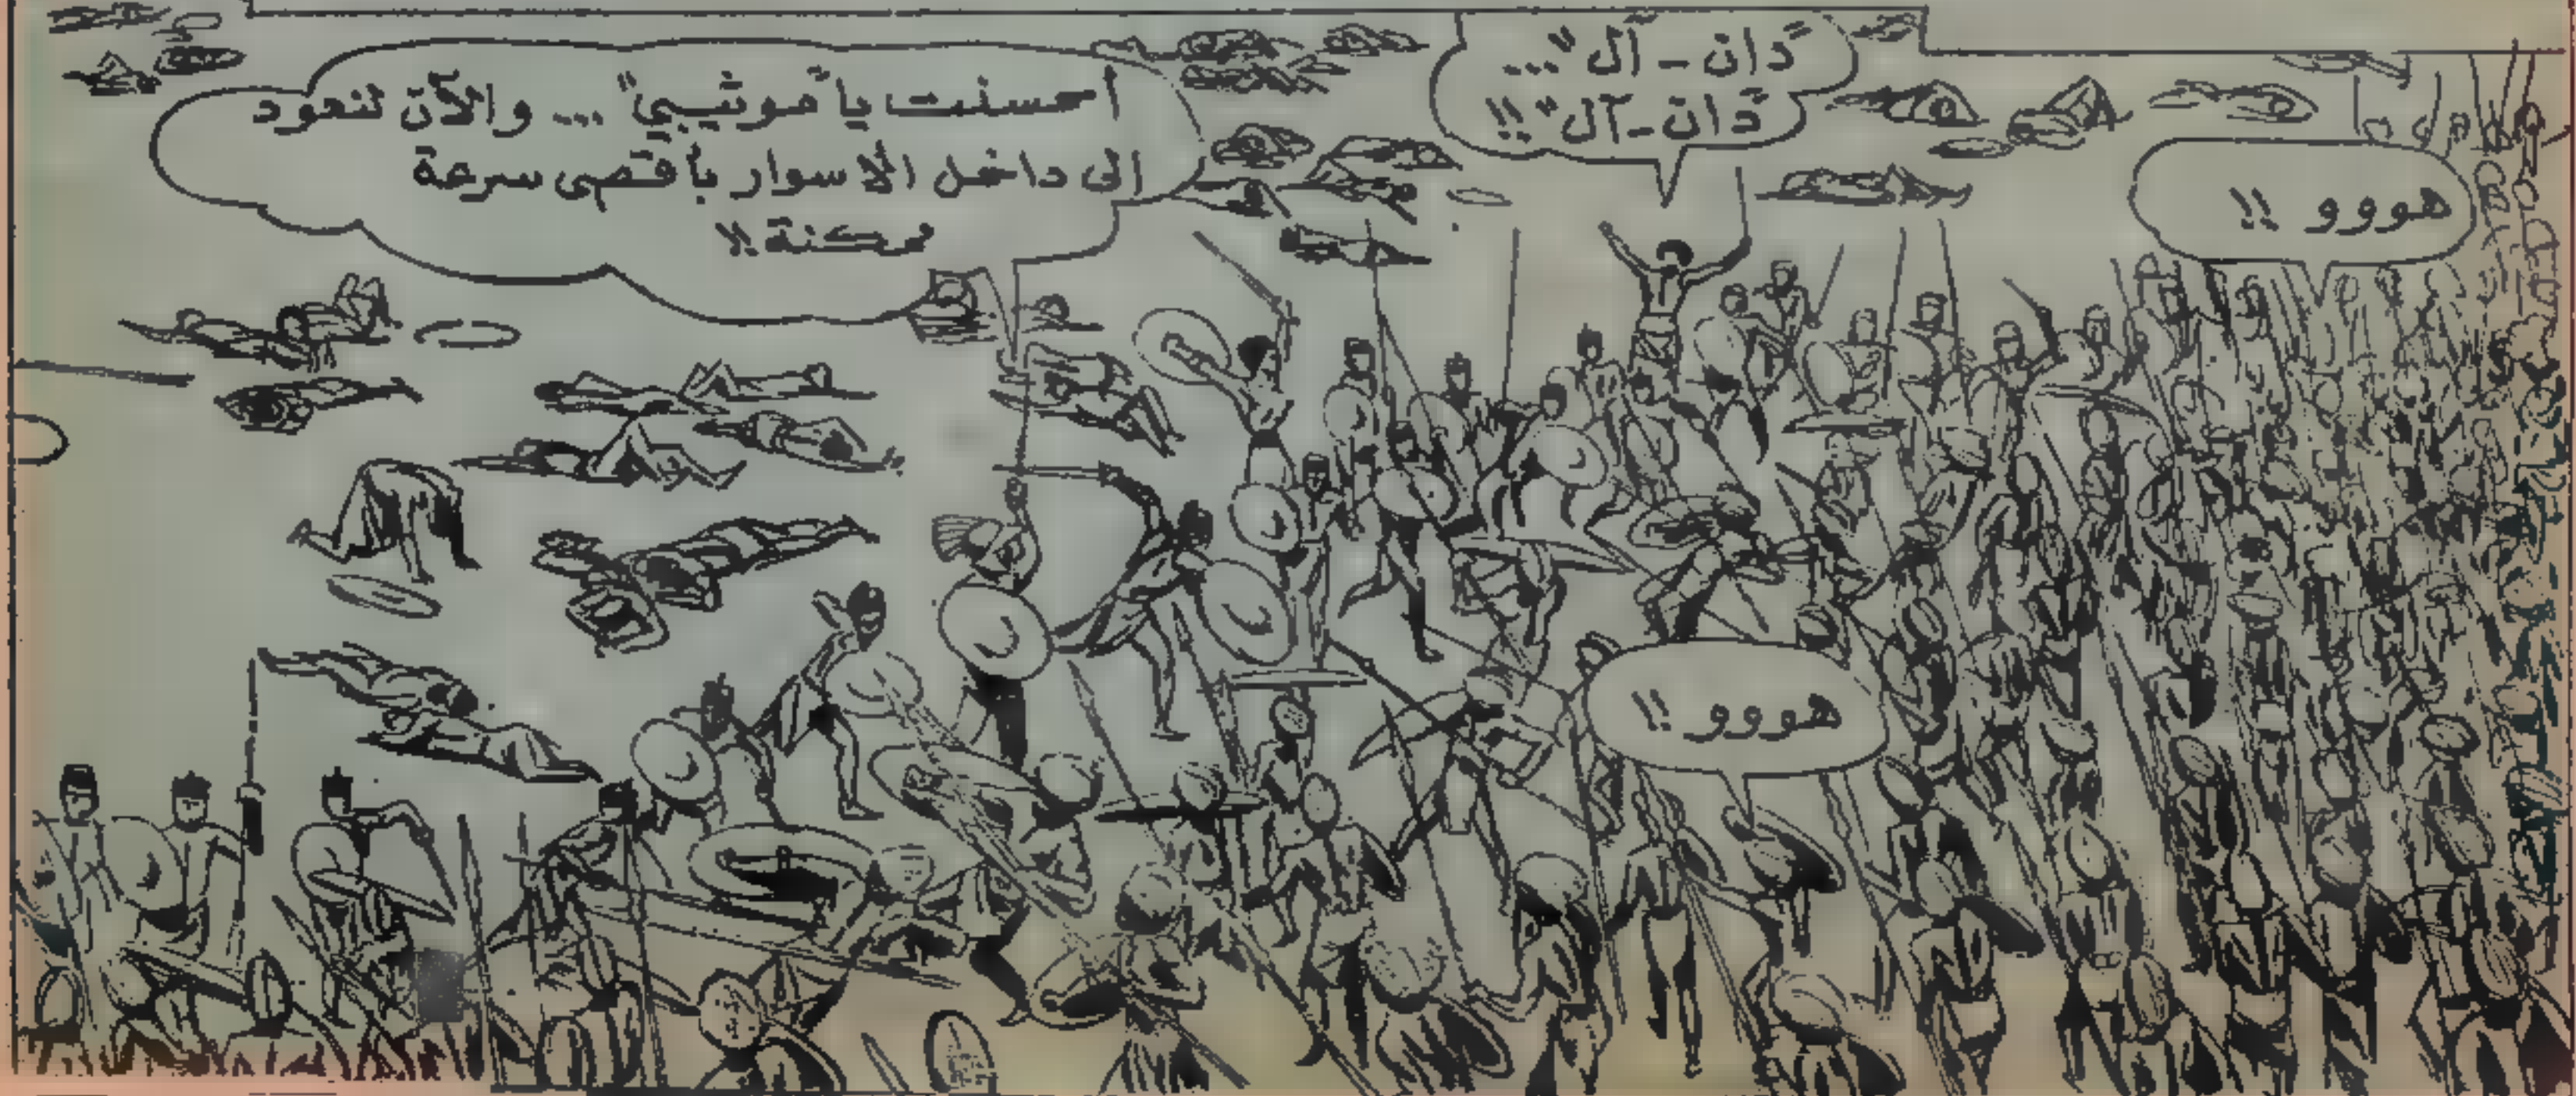 هووو !!
"دان - آل"...
"دان - آل"!!
أحسنت يا "موتيبي"... والآن لنعود
الى داخل الاسوار بأقصى سرعة
ممكنة !!
هووو !!